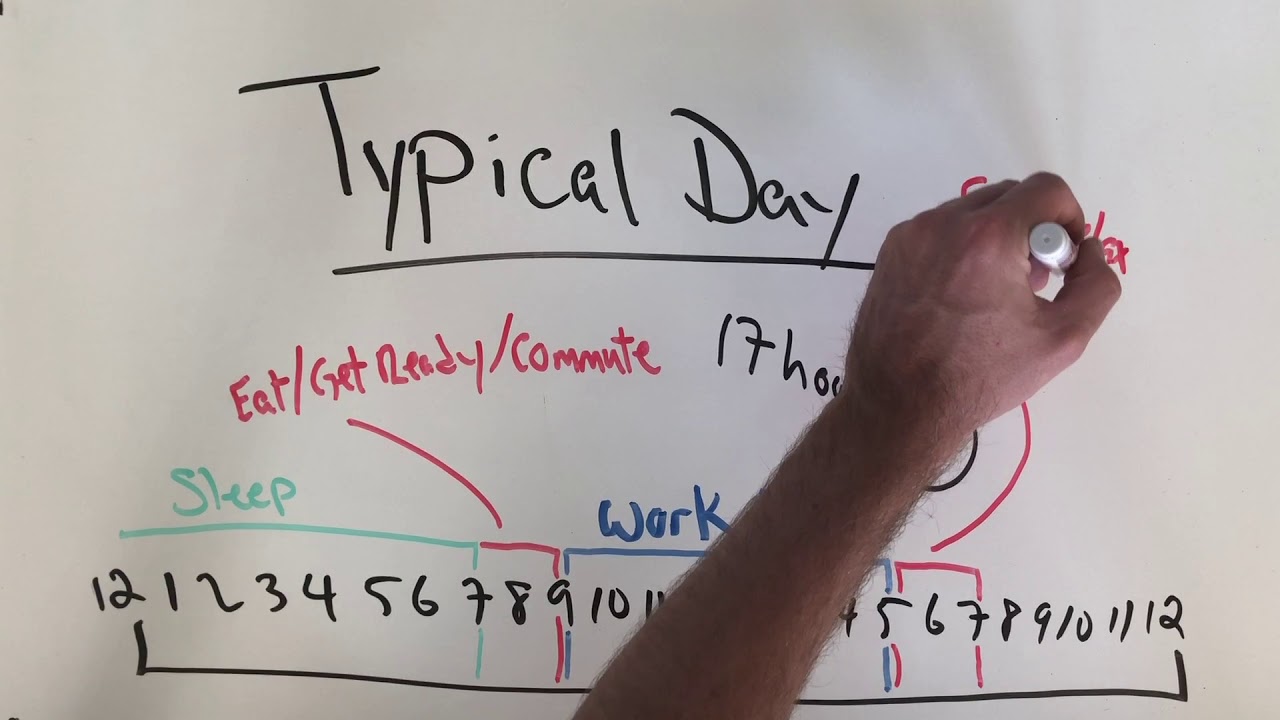 Typical Day
Eat/Get Ready/Commute
17
Sleep
Work
12 1 2 3 4 5 6 7 8 9 10 5 6 7 8 9 10 11 12